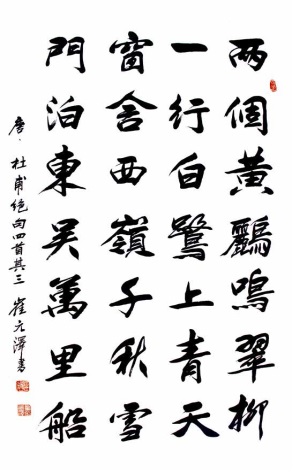 两個黃鸝鳴翠柳
一行白鷺上青天
窗含西嶺千秋雪
門泊東吴萬里船
唐·杜甫绝句四首其三 崔元澤書